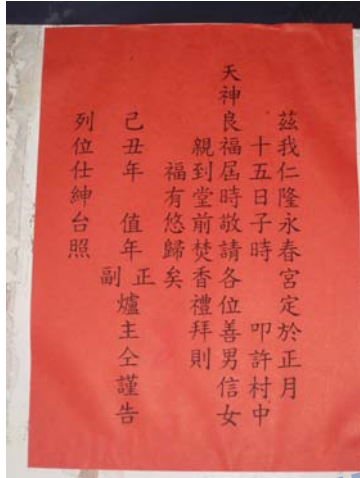 茲我仁隆永春宮定於正月
十五日子時　叩許村中
天神良福屆時敬請各位善男信女
親到堂前焚香禮拜則
福有悠歸矣
己丑年　值年正副爐主仝謹告
列位仕紳台照